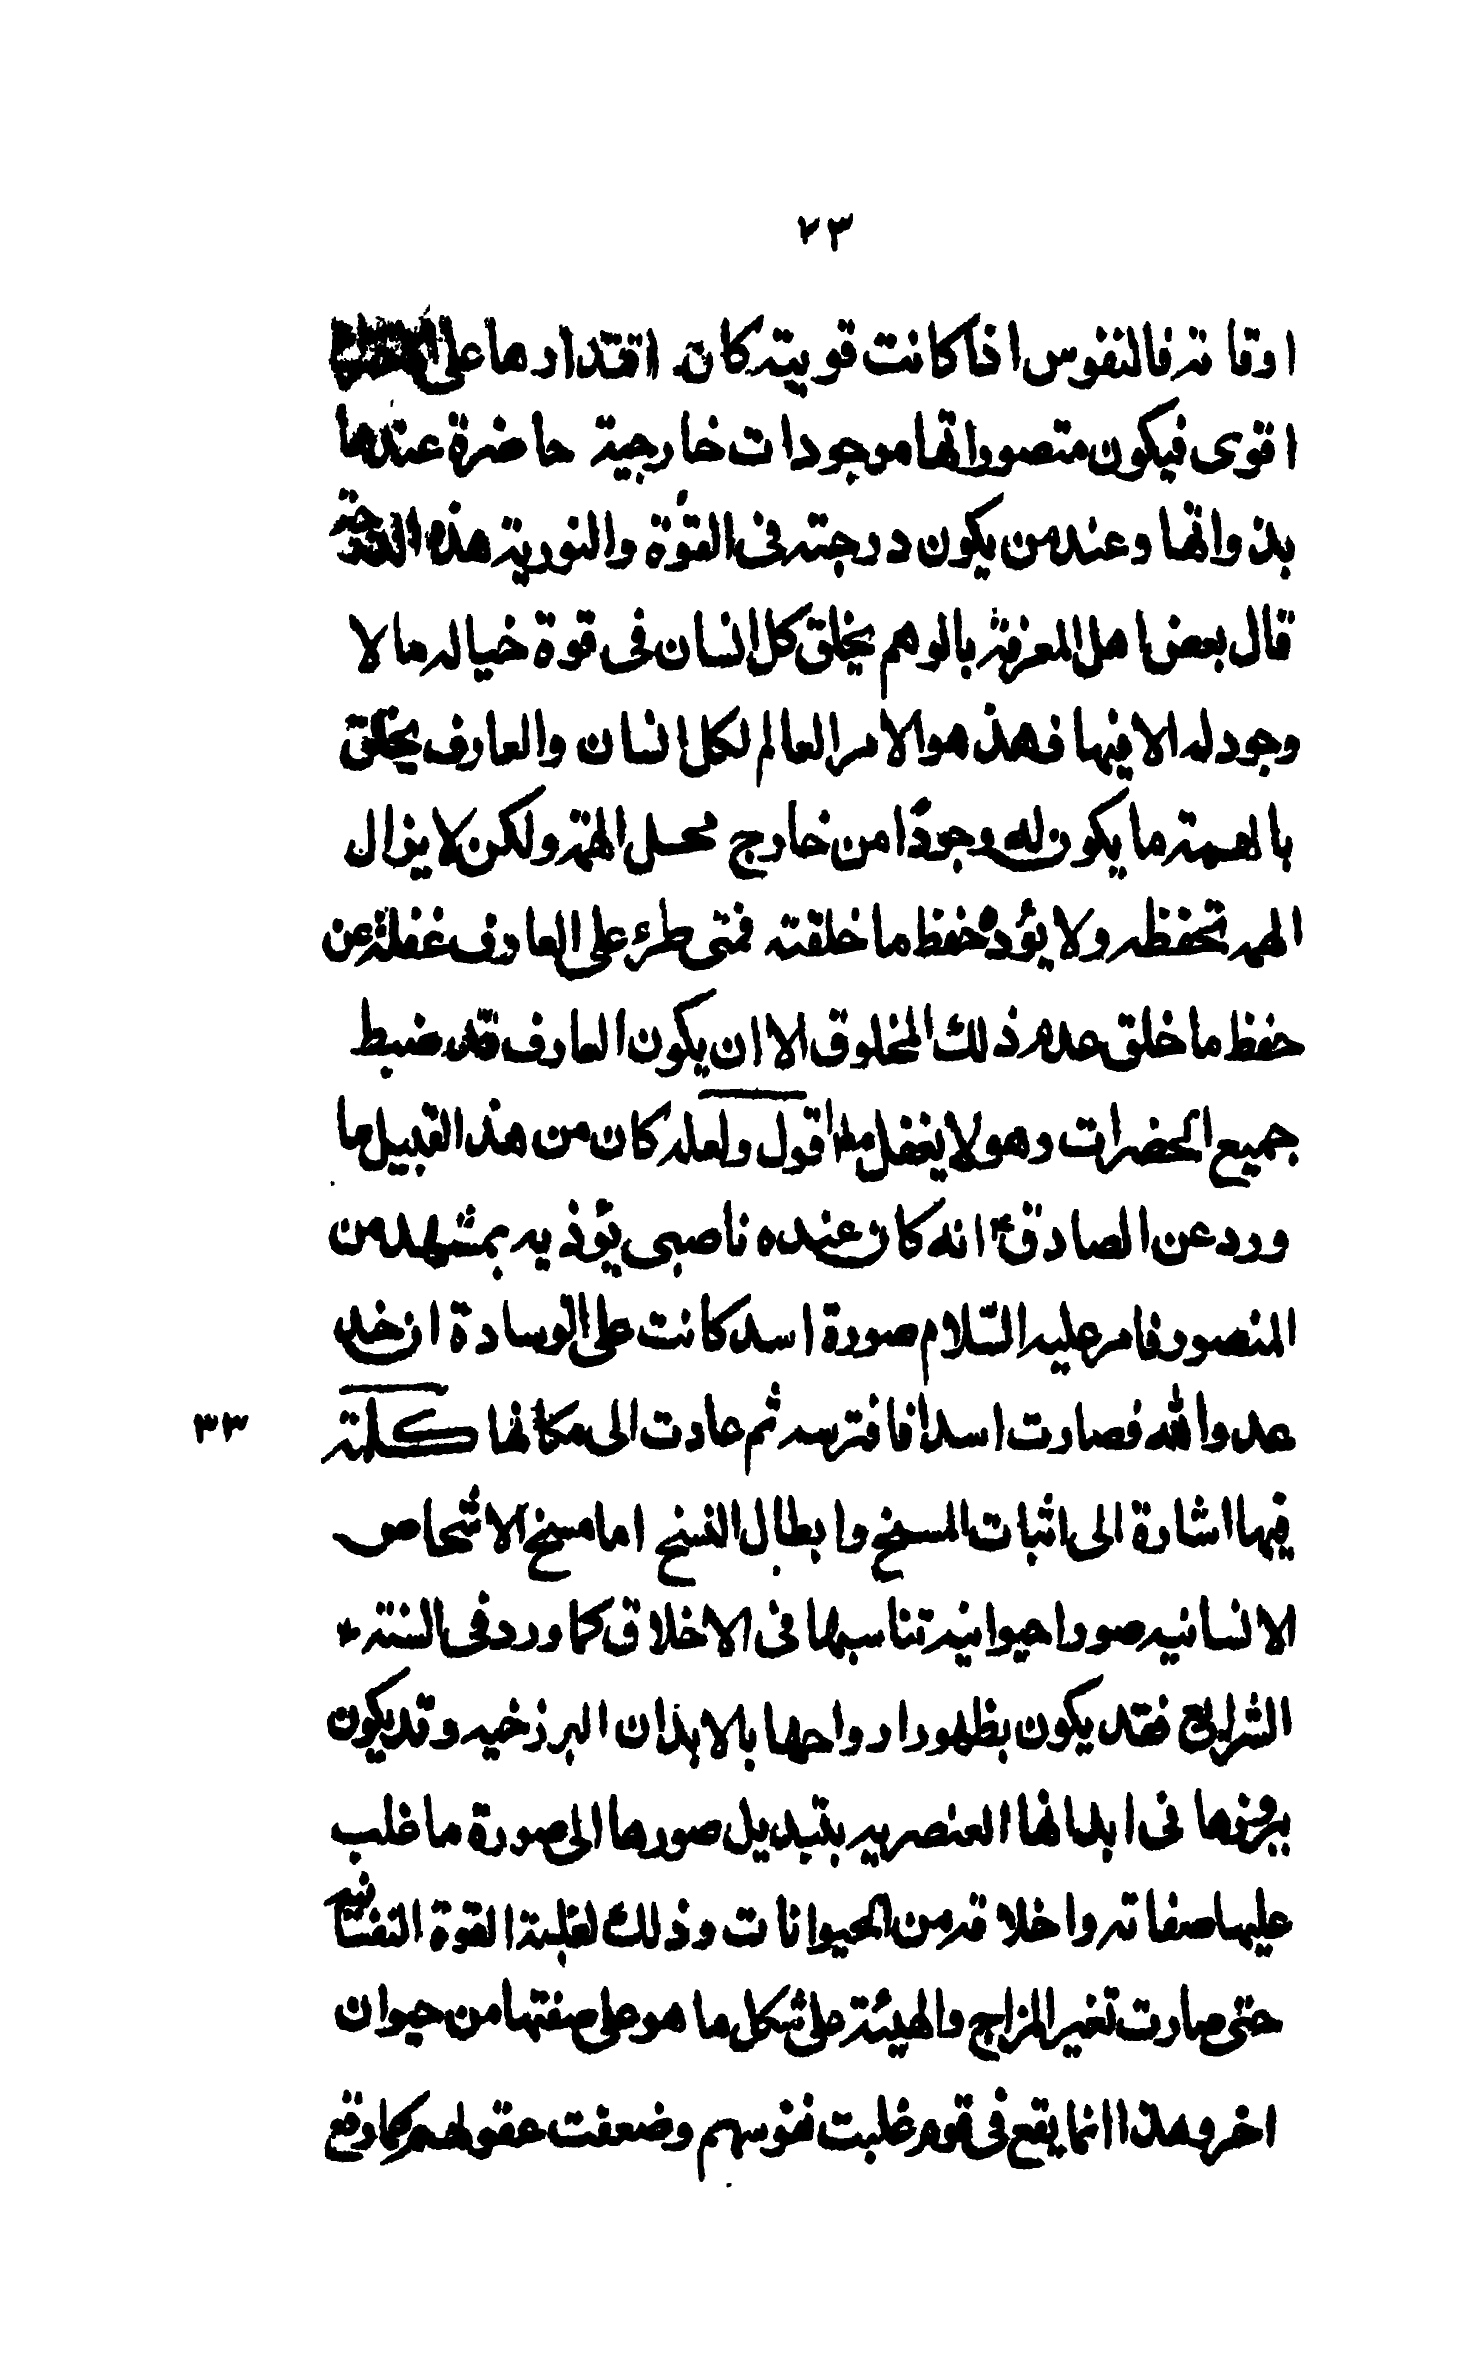 ٧٣
اوقاته فالنفوس اذا كانت قويته كان اقتدارها على
اقوى فيكون متصوراتها موجودات خارجية حاضرة عندها
بذواتها وعند من يكون درجته فى القوّة والنورية هذه الدرجة
قال بعض اهل المعرفة بالوهم يخلق كل انسان فى قوة خياله ما لا
وجود له الا فيها فهذ هو الامر العالم لكل انسان والعارف يخلق
بالهمته ما يكون له وجودًا من خارج محل الهمّة ولكن لا يزال
الهمه تحفظه ولا يؤده حفظ ما خلقته فمتى طرء على العارف غفلة عن
حفظ ما خلق عدم ذلك المخلوق الا ان يكون العارف قد ضبط
جميع الحضرات وهو لا يغفل مطلقا اقول ولعله كان من هذ القبيل ما
ورد عن الصادق ع انه كان عنده ناصبى يؤذيه بمشهد من
المنصور فامر عليه السّلام صورة اسد كانت على الوسادة ان خذ
عدو الله فصارت اسدا فافترسه ثم عادت الى مكانها كلمته
٣٣
فيها اشارة الى اثبات المسخ وابطال النسخ اما مسخ الاشخاص
الانسانيه صورا حيوانيه تناسبها فى الاخلاق كما ورد فى السنته *
الشرايع فقد يكون بظهور ارواحها بالابدان البرزخيه وقد يكون
ببروزها فى ابدانها العنصريه بتبديل صورها الى صورة ما غلب
عليها صفاته واخلاقه من الحيوانات وذلك لغلبة القوة النفسانيه
حتى صارت تغير المزاج والهيئة على شكل ما هو على صفتها من حيوان
اخر وهذا انما يقع فى قوم غلبت نفوسهم وضعفت عقولهم كما وقع